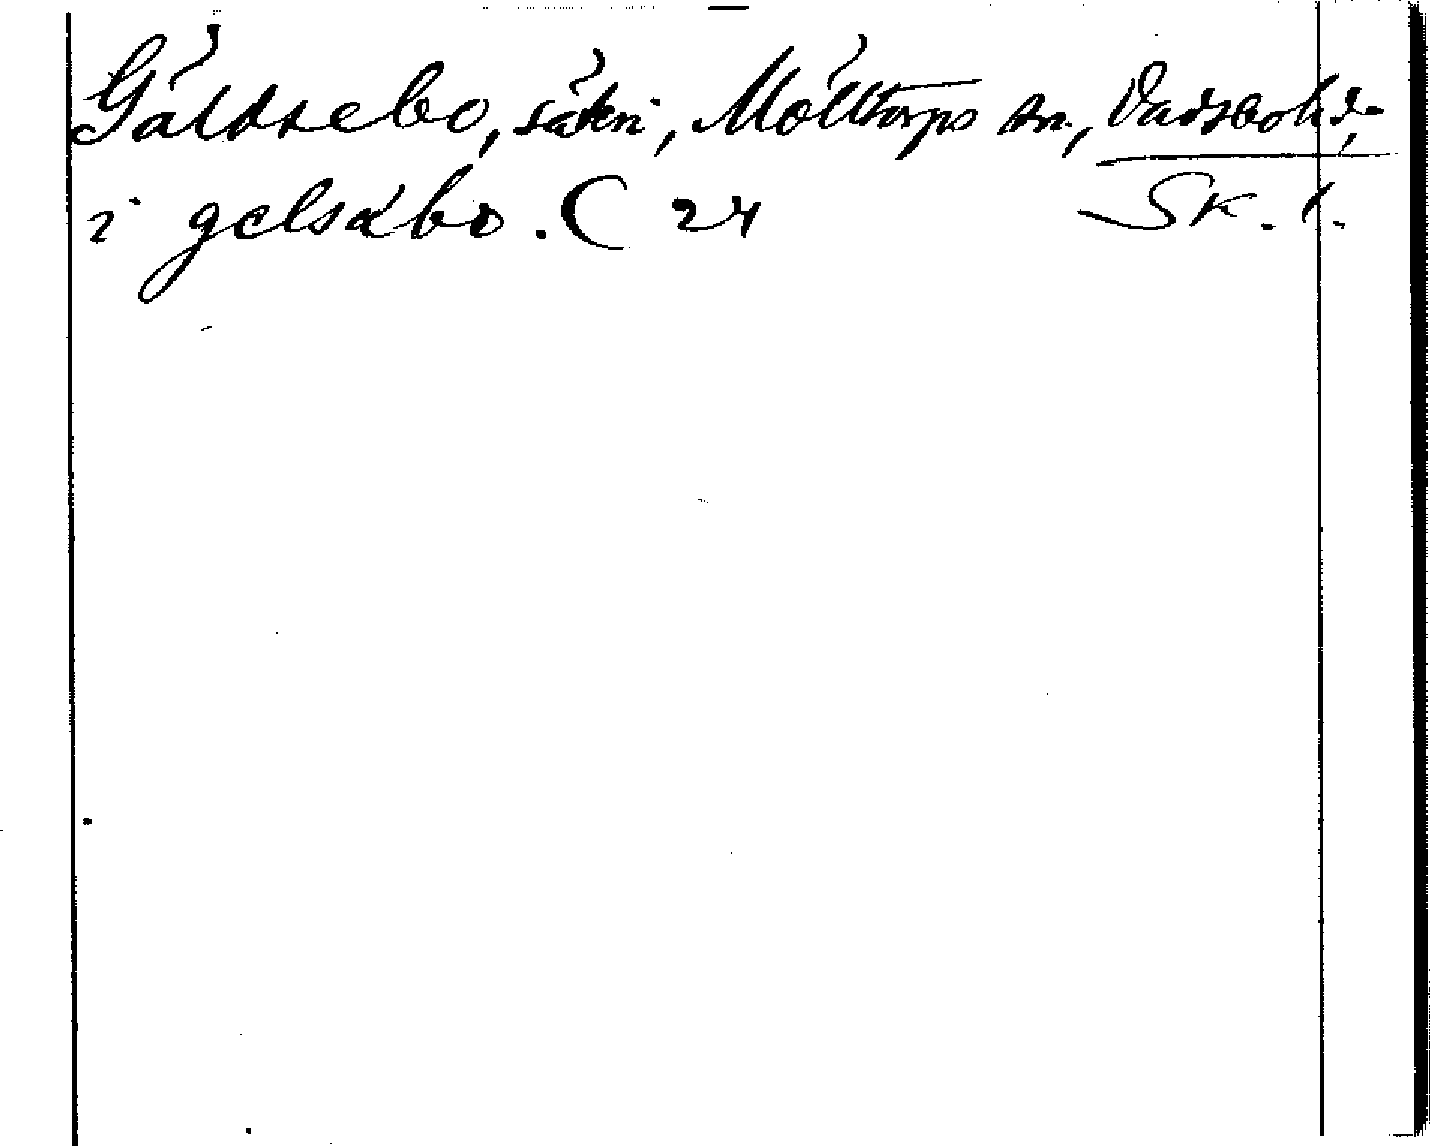 Gäldsebo, säteri, Mölltorps sn., Vadsbo hd.,
i gelsabo. C 24 Sk. l.